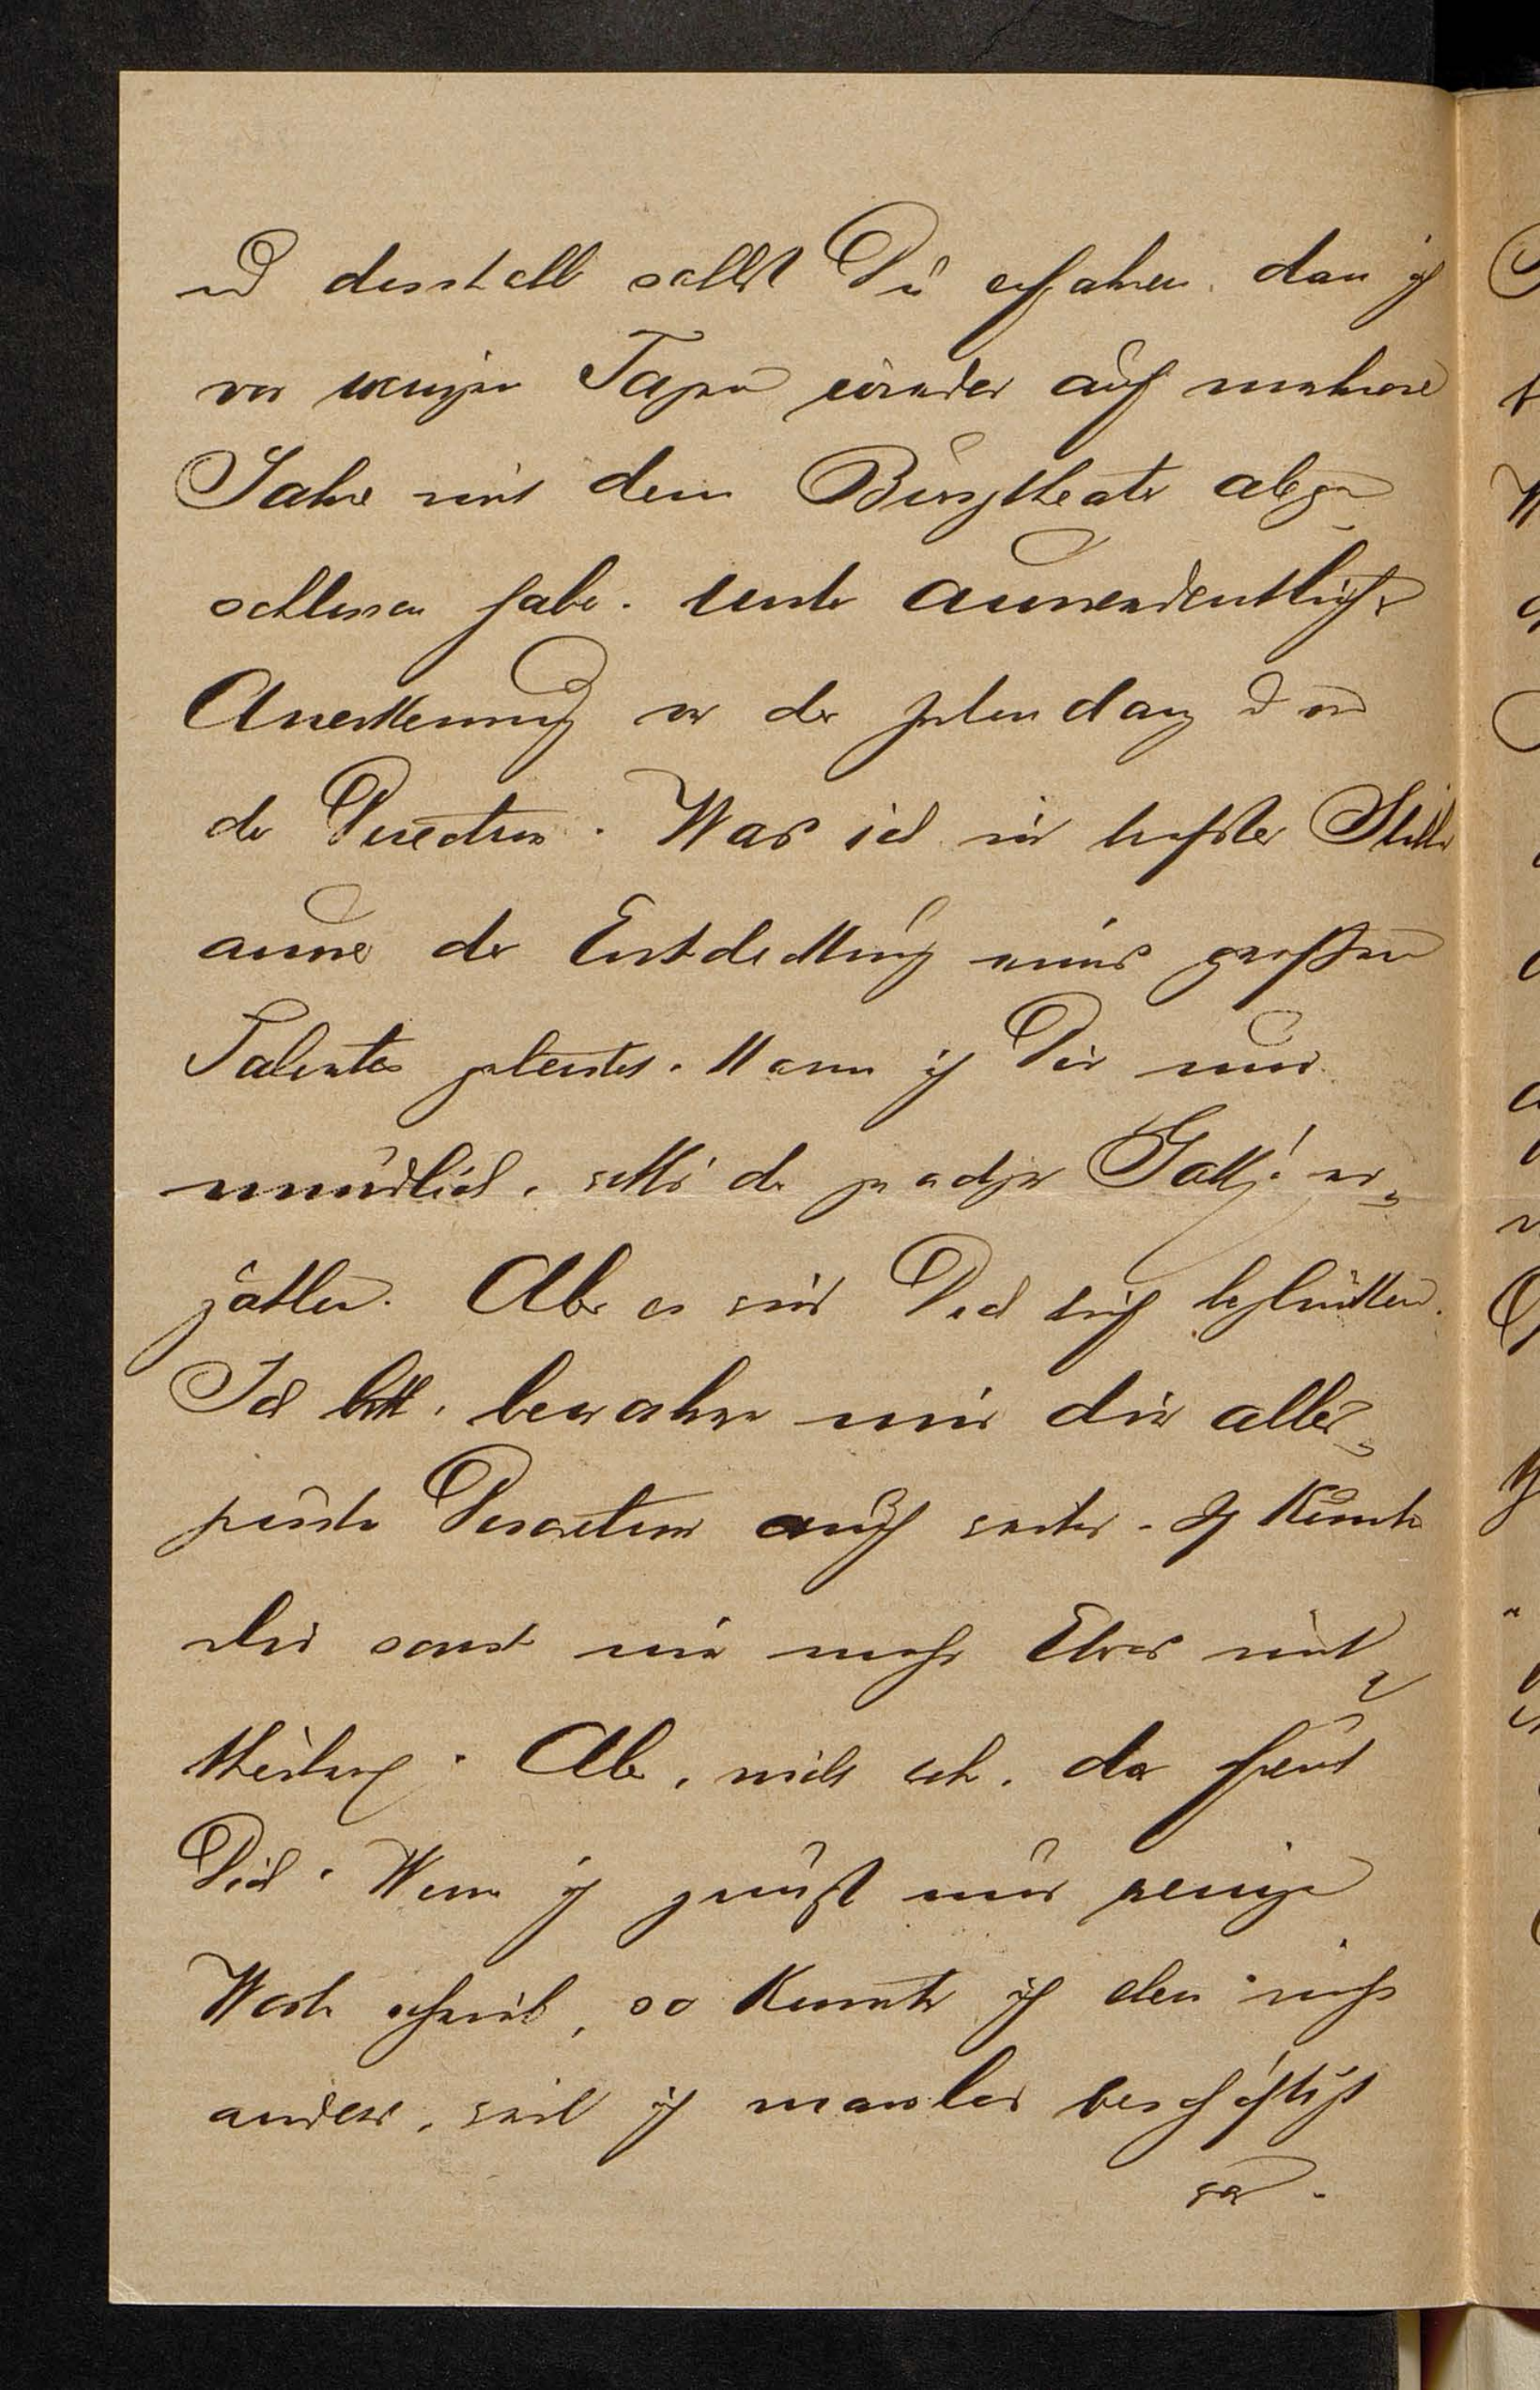 und desshalb sollst Du erfahren, dass ich
vor wenigen Tagen wieder auf mehrere
Jahre mit dem Burgtheater abge-
schlossen habe. Unter ausserordentlicher
Anerkennung von der Intendanz und von
der Direction. Was ich in tiefster Stille
ausser der Entdeckung eines großen
Talentes geleistet, kann ich Dir nur
mündlich, wills der gnädige Gott! er-
zählen. Aber es wird Dich tief beglücken.
Ich bitte, bewahre mir die aller-
größte Discretion auch weiter. Ich könnte
Dir sonst nie mehr Etwas mit-
theilen. Aber, nicht wahr, das freut
Dich. Wenn ich zunächst nur wenige
Worte schrieb, so konnte ich eben nicht
anders, weil ich maßlos beschäftigt
war.